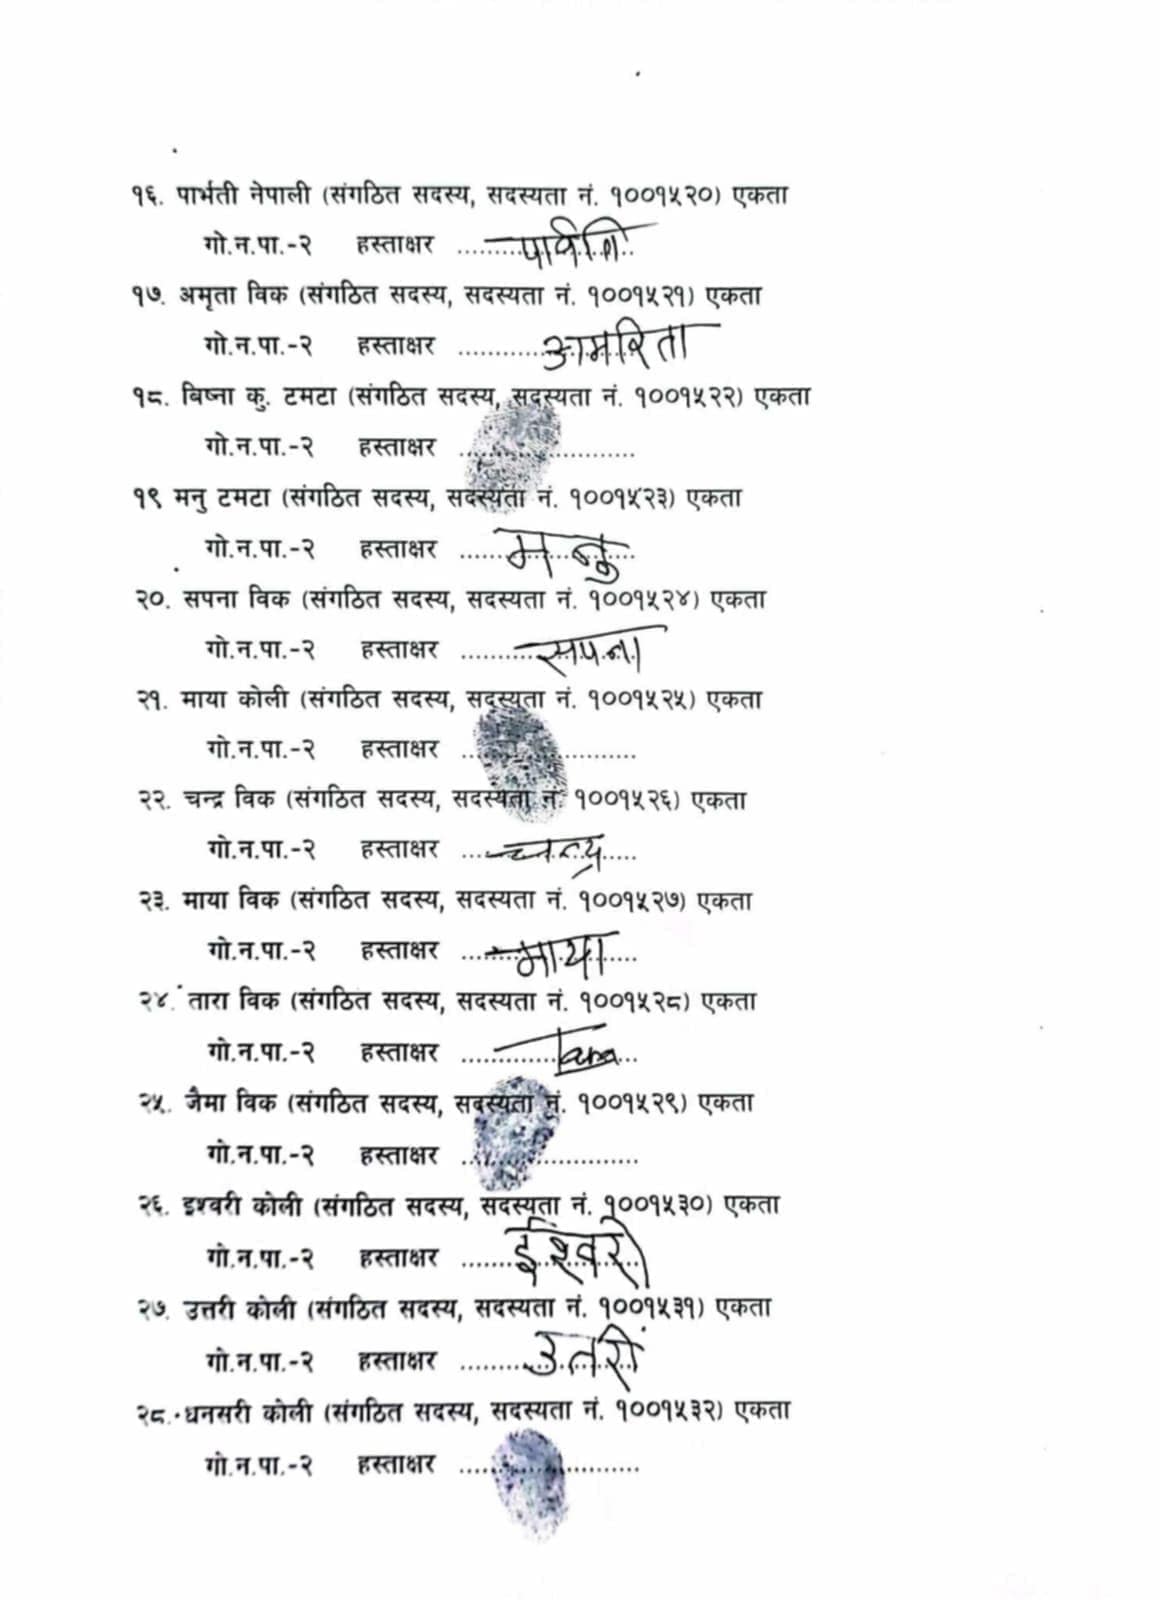 १६. पार्भती नेपाली (संगठित सदस्य, सदस्यता नं. १००१५२०) एकता
गो.न.पा.-२ हस्ताक्षर ..........
१७. अमृता विक (संगठित सदस्य, सदस्यता नं. १००१५२१) एकता
गो.न.पा.-२ हस्ताक्षर .......... आमरिता
१८. बिष्ना कु. टमटा (संगठित सदस्य, सदस्यता नं. १००१५२२) एकता
गो.न.पा.-२ हस्ताक्षर ..........
१९ मनु टमटा (संगठित सदस्य, सदस्यता नं. १००१५२३) एकता
गो.न.पा.-२ हस्ताक्षर .......... मनु
२०. सपना विक (संगठित सदस्य, सदस्यता नं. १००१५२४) एकता
गो.न.पा.-२ हस्ताक्षर .......... सपना
२१. माया कोली (संगठित सदस्य, सदस्यता नं. १००१५२५) एकता
गो.न.पा.-२ हस्ताक्षर ..........
२२. चन्द्र विक (संगठित सदस्य, सदस्यता नं. १००१५२६) एकता
गो.न.पा.-२ हस्ताक्षर .......... चन्द्र
२३. माया विक (संगठित सदस्य, सदस्यता नं. १००१५२७) एकता
गो.न.पा.-२ हस्ताक्षर .......... माया
२४. तारा विक (संगठित सदस्य, सदस्यता नं. १००१५२८) एकता
गो.न.पा.-२ हस्ताक्षर .......... Tara
२५. जैमा विक (संगठित सदस्य, सदस्यता नं. १००१५२९) एकता
गो.न.पा.-२ हस्ताक्षर ..........
२६. इश्वरी कोली (संगठित सदस्य, सदस्यता नं. १००१५३०) एकता
गो.न.पा.-२ हस्ताक्षर .......... ईश्वरी
२७. उत्तरी कोली (संगठित सदस्य, सदस्यता नं. १००१५३१) एकता
गो.न.पा.-२ हस्ताक्षर .......... उतरी
२८. धनसरी कोली (संगठित सदस्य, सदस्यता नं. १००१५३२) एकता
गो.न.पा.-२ हस्ताक्षर ..........